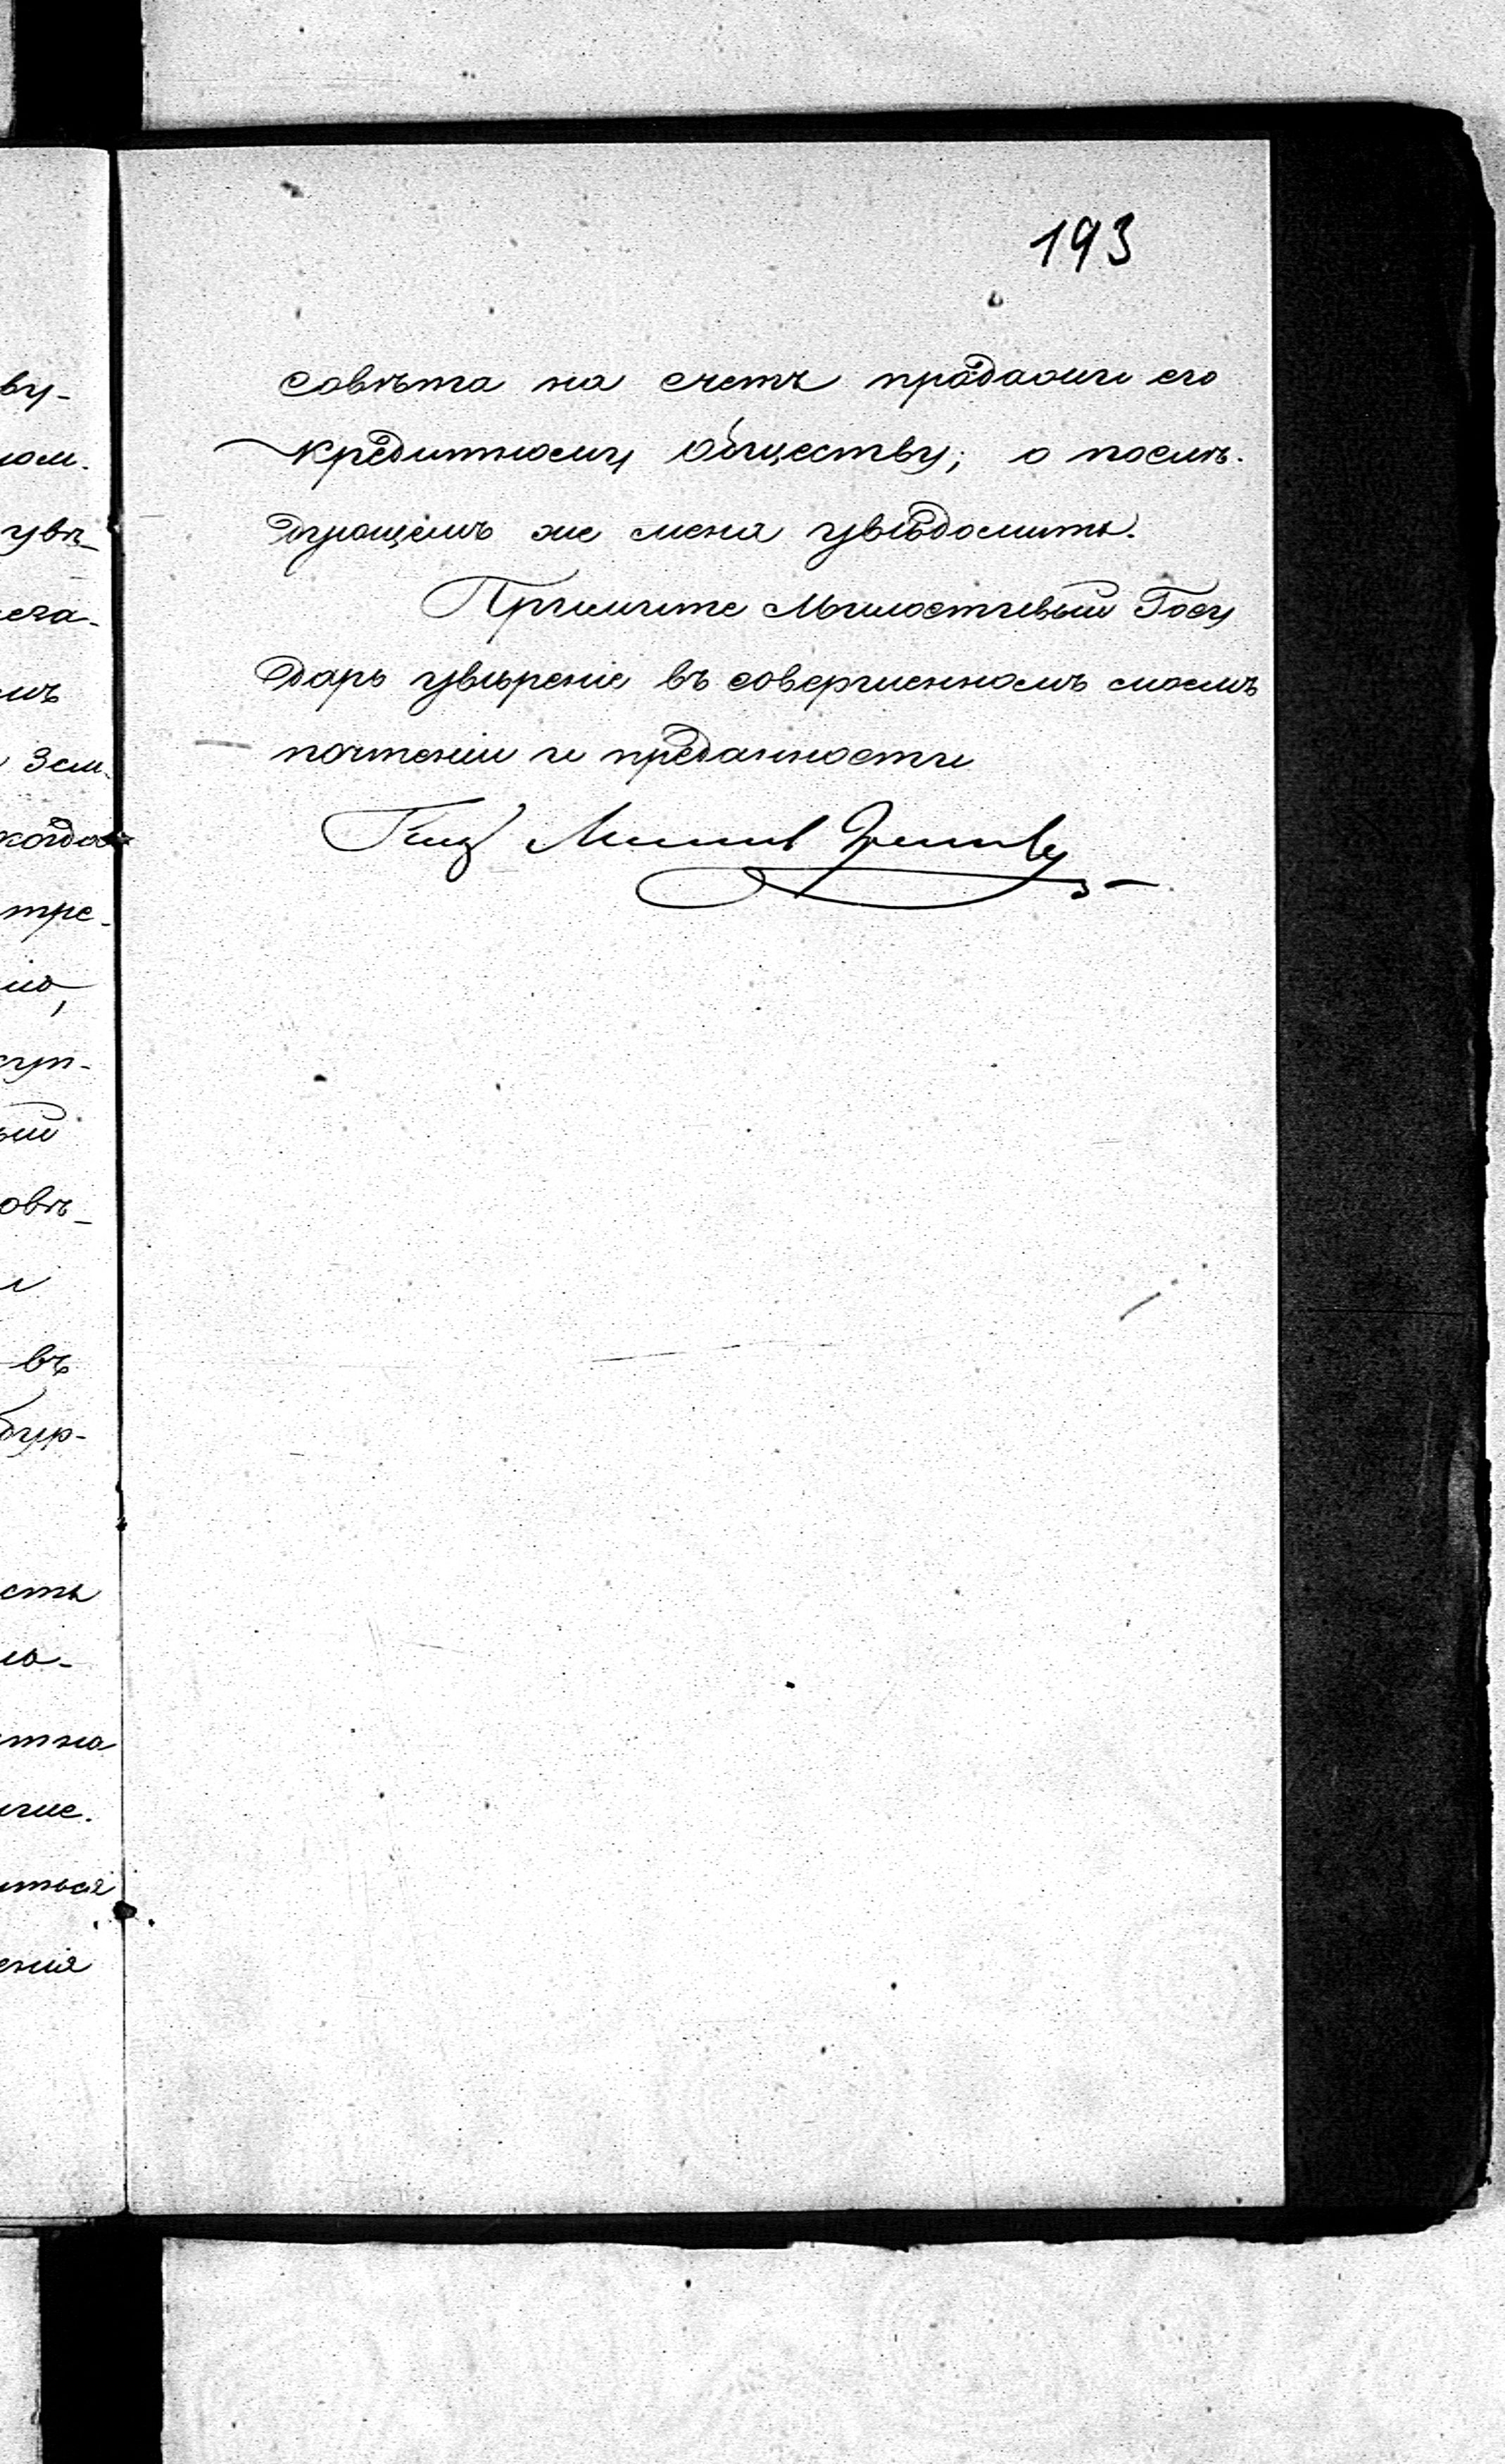 193
совѣта на счетъ продажи его
кредитному обществу; о послѣ-
дующемъ же меня увѣдомить.
Примите Милостивый Госу
дарь увѣреніе въ совершенномъ моемъ
почтеніи и преданности
ву-
ном.
увѣ-
еча-
мъ
Зем.
когда
тре-
но,
суп-
ый
овѣ-
и
въ
бур-
сть
ло-
тна
ние.
иться
енія